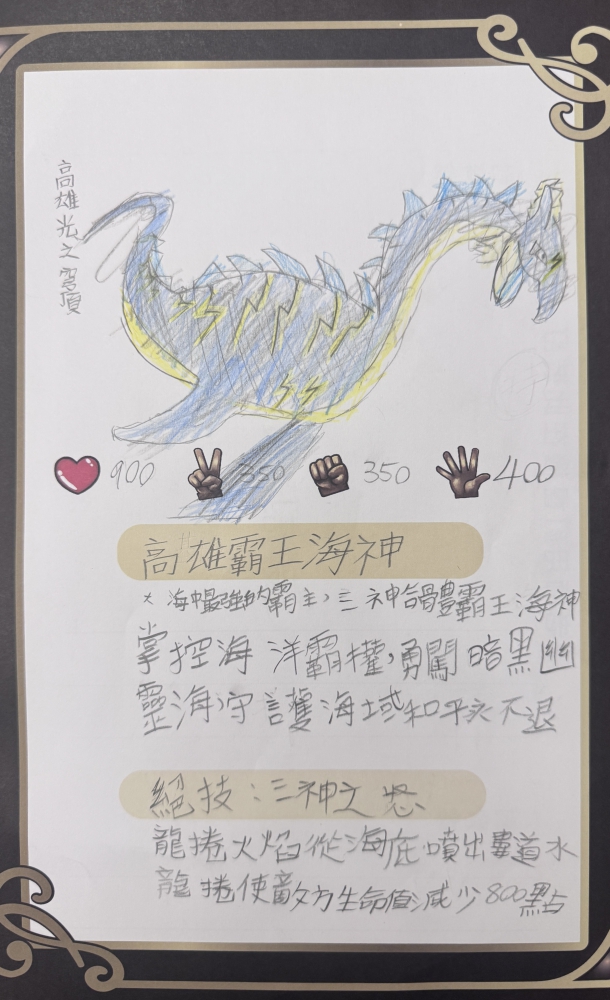 高雄光之穹頂
900 350 350 400
高雄霸王海神
* 海中最強的霸主,三神合體霸王海神
掌控海洋霸權,勇闖暗黑幽
靈海守護海域和平永不退
絕技:三神之怒
龍捲火焰從海底噴出數道水
龍捲使敵方生命值減少800點